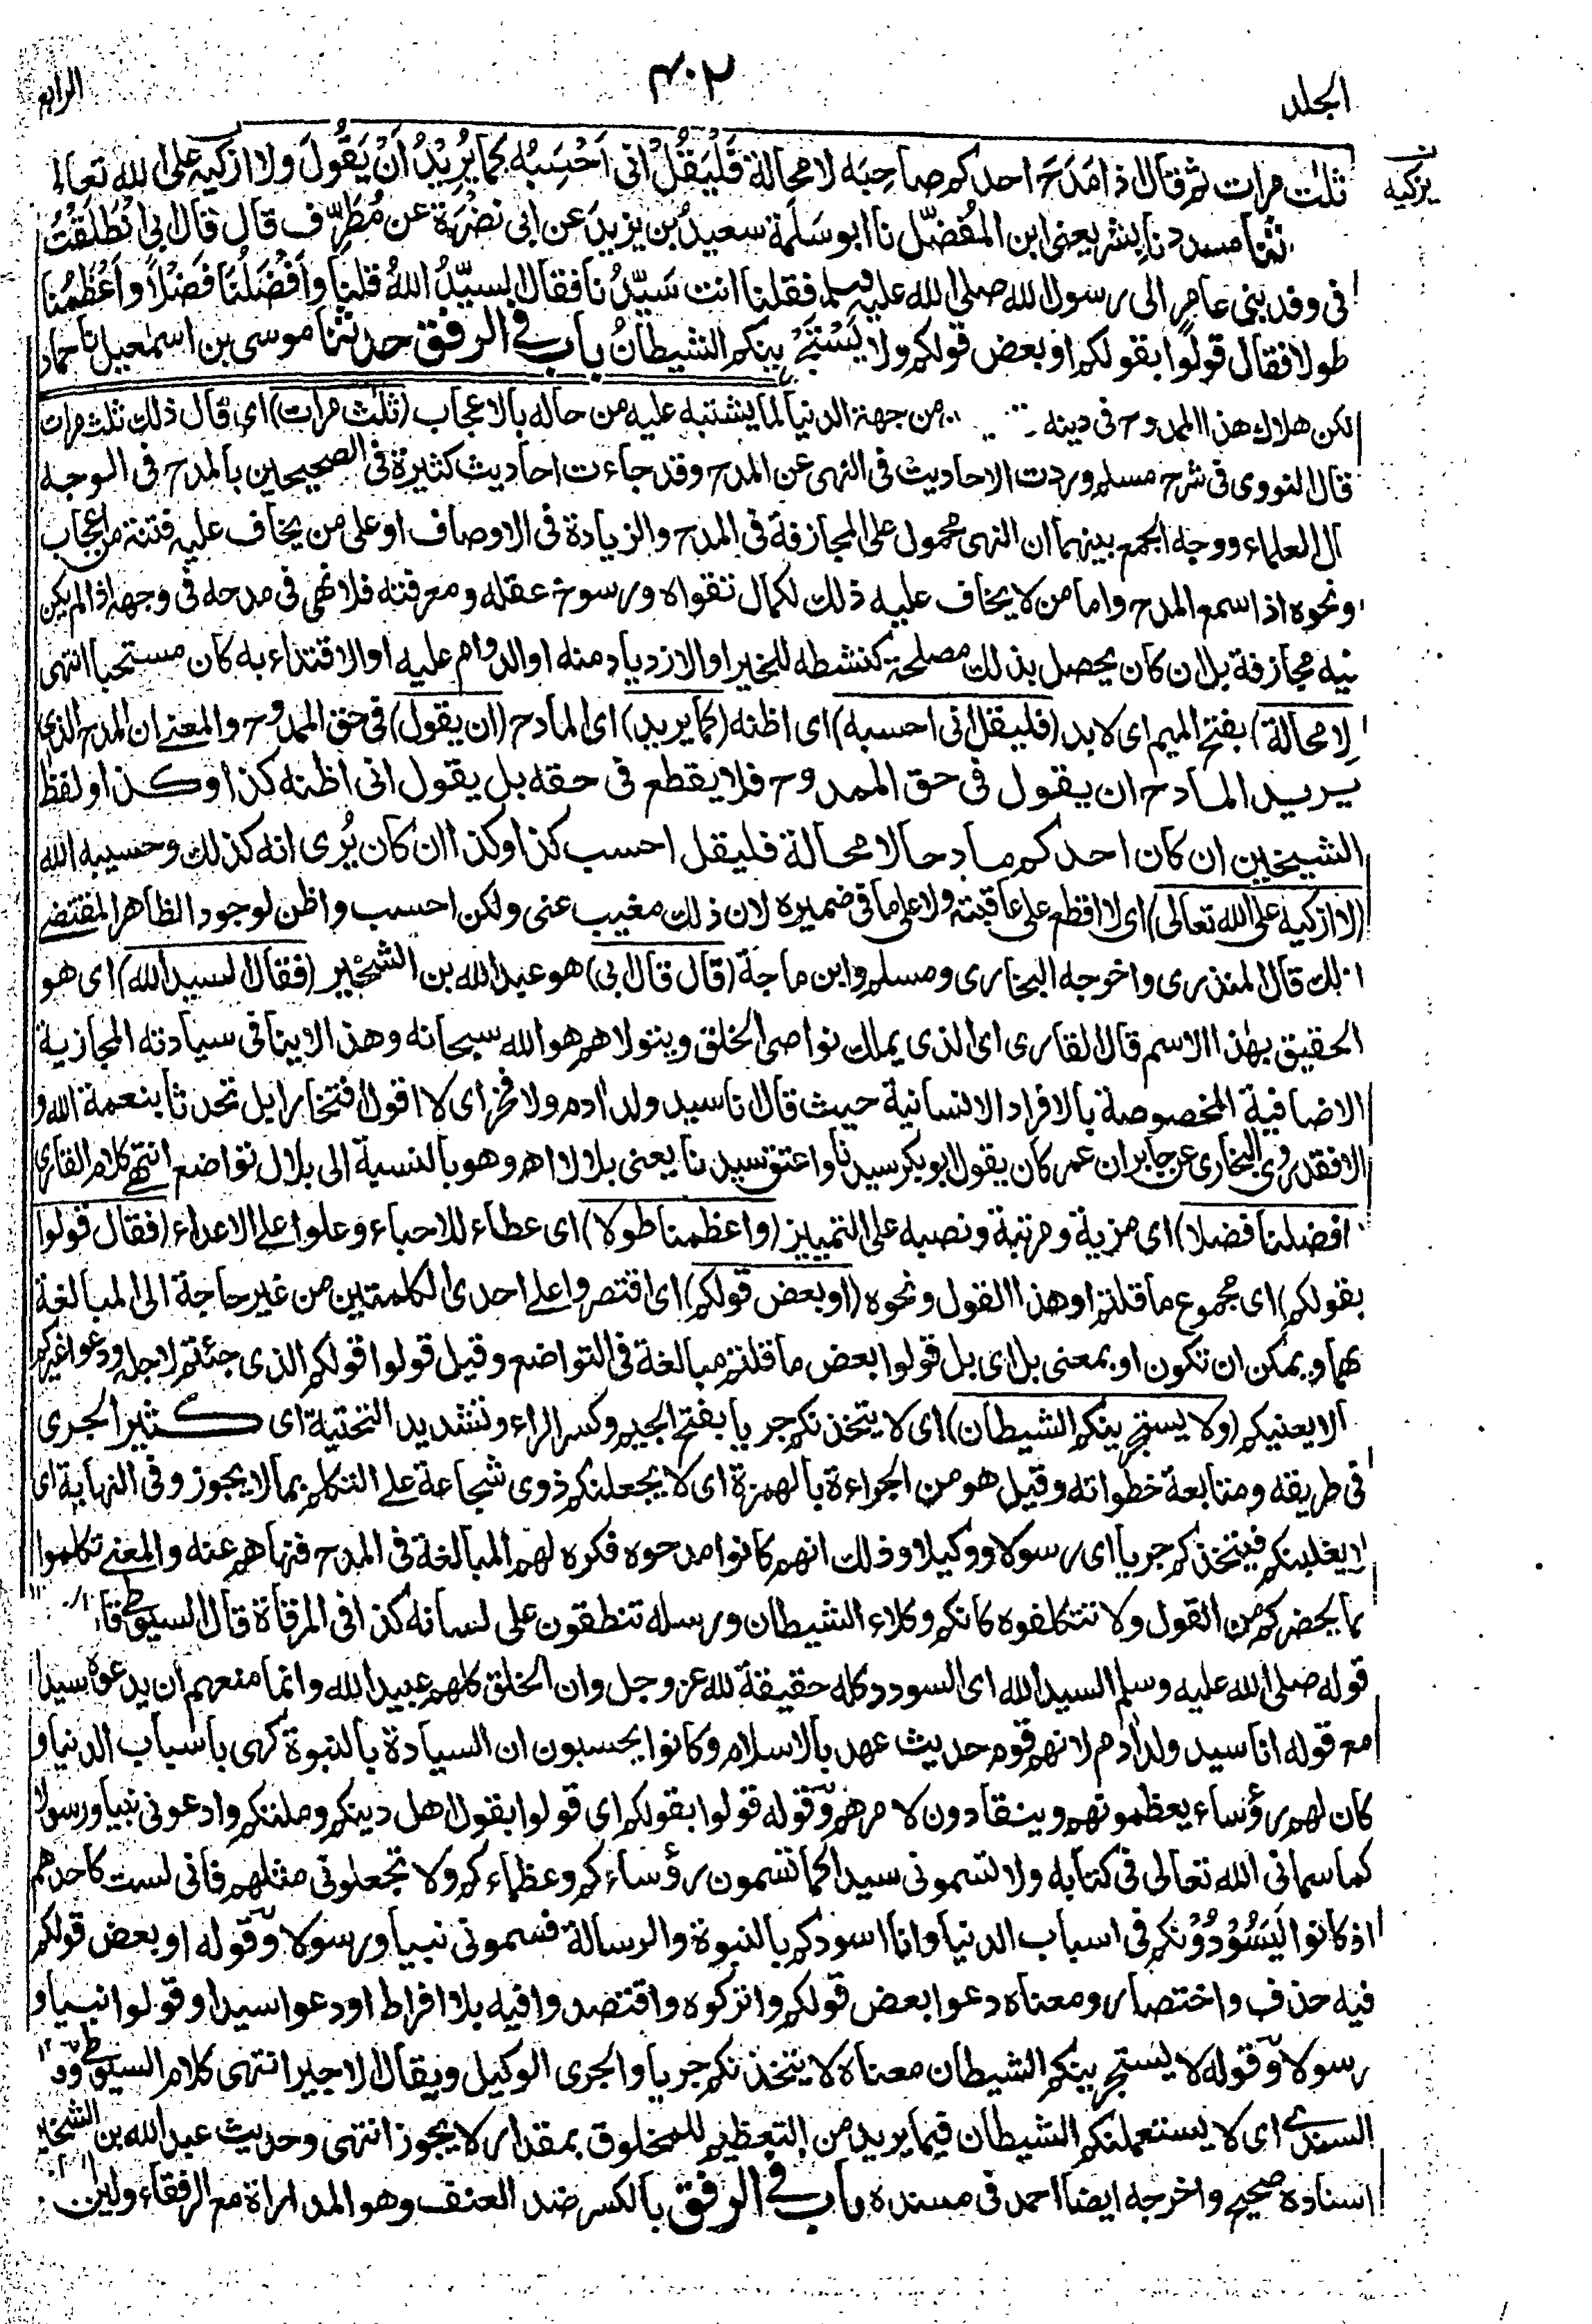 الجلد
٤٠٢
الرابع
يزكيه
ثلث مرات ثم قال اذا مَدَحَ احدكم صاحِبَه لا محالة فَلْيَقُلْ انى اَحْسِبُه كما يُرِيْدُ اَنْ يَقُولَ ولا ازكيه على الله تعالى
ثنا مسدد نا بِشر يعنى ابن المُفَضّل نا ابو سَلَمة سعيدُ بن يزيدَ عن ابى نَضْرَة عن مُطَرِّف قال قال ابى اِنْطَلَقْتُ
فى وفد بنى عامرٍ الى رسول الله صلى الله عليه وسلم فقلنا انت سَيِّدُنا فقال السيّدُ اللهُ قلنا وأَفْضَلُنا فَضْلًا واَعْظَمُنا
طولا فقال قولوا بقولكم او بعض قولكم ولا يَسْتَجْرِيَنَّكم الشيطانُ باب فى الرفق حدثنا موسى بن اسمٰعيل نا حماد
لكن هلاك هذا الممدوح فى دينه من جهة الدنيا لما يشتبه عليه من حاله بالاعجاب (ثلث مرات) اى قال ذلك ثلث مرات
قال النووى فى شرح مسلم وردت الاحاديث فى النهى عن المدح وقد جاءت احاديث كثيرة فى الصحيحين بالمدح فى الوجه
ال العلماء ووجه الجمع بينهما ان النهى محمول على المجازفة فى المدح والزيادة فى الاوصاف او على من يخاف عليه فتنة من اعجاب
ونحوه اذا سمع المدح واما من لا يخاف عليه ذلك لكمال تقواه ورسوخ عقله ومعرفته فلا نهى فى مدحه فى وجهه اذا لم يكن
فيه مجازفة بل ان كان يحصل بذلك مصلحة كنشطه للخير او الازدياد منه او الدوام عليه او الاقتداء به كان مستحبا انتهى
(لا محالة) بفتح الميم اى لا بد (فليقل انى احسبه) اى اظنه (كما يريد) اى المادح (ان يقول) فى حق الممدوح والمعنى ان المدح الذى
يريد المادح ان يقول فى حق الممدوح فلا يقطع فى حقه بل يقول انى اظنه كذا وكذا ولفظ
الشيخين ان كان احدكم مادحا لا محالة فليقل احسب كذا وكذا ان كان يُرى انه كذلك وحسيبه الله
(لا ازكيه على الله تعالى) اى لا اقطع على عاقبته ولا على ما فى ضميره لان ذلك مغيب عنى ولكن احسب واظن لوجود الظاهر المقتضى
لذلك قال المنذرى واخرجه البخارى ومسلم وابن ماجة (قال قال ابى) هو عبد الله بن الشخير (فقال السيد الله) اى هو
الحقيق بهٰذا الاسم قال القارى اى الذى يملك نواصى الخلق ويتولاهم هو الله سبحانه وهذا لا ينافى سيادته المجازية
الاضافية المخصوصة بالافراد الانسانية حيث قال انا سيد ولد اٰدم ولا فخر اى لا اقول افتخارا بل تحدثا بنعمة الله و
الا فقد روى البخارى عن جابر ان عمر كان يقول ابو بكر سيدنا واعتق سيدنا يعنى بلالا اه وهو بالنسبة الى بلال تواضع انتهى كلام القارى
(وافضلنا فضلا) اى مزية ومرتبة ونصبه على التمييز (واعظمنا طولا) اى عطاء للاحباء وعلوا على الاعداء (فقال قولوا
بقولكم) اى مجموع ما قلتم او هذا القول ونحوه (او بعض قولكم) اى اقتصروا على احدى الكلمتين من غير حاجة الى المبالغة
بهما ويمكن ان تكون او بمعنى بل اى بل قولوا بعض ما قلتم مبالغة فى التواضع وقيل قولوا قولكم الذى جئتم لاجله ودعوا غيركم
الا يعنيكم (ولا يستجرينكم الشيطان) اى لا يتخذنكم جريا بفتح الجيم وكسر الراء وتشديد التحتية اى كثير الجرى
فى طريقه ومتابعة خطواته وقيل هو من الجراءة بالهمزة اى لا يجعلنكم ذوى شجاعة على التكلم بما لا يجوز وفى النهاية اى
لا يغلبنكم فيتخذكم جريا اى رسولا ووكيلا وذلك انهم كانوا مدحوه فكره لهم المبالغة فى المدح فنهاهم عنه والمعنى تكلموا
بما يحضركم من القول ولا تتكلفوه كانكم وكلاء الشيطان ورسله تنطقون على لسانه كذا فى المرقاة قال السيوطى قال
قوله صلى الله عليه وسلم السيد الله اى السودد كله حقيقة لله عز وجل وان الخلق كلهم عبيد الله وانما منعهم ان يدعوه سيدا
مع قوله انا سيد ولد اٰدم لانهم قوم حديث عهد بالاسلام وكانوا يحسبون ان السيادة بالنبوة كهى باسباب الدنيا و
كان لهم رؤساء يعظمونهم وينقادون لامرهم وقوله قولوا بقولكم اى قولوا بقول اهل دينكم وملتكم وادعونى نبيا ورسولا
كما سمانى الله تعالى فى كتابه ولا تسمونى سيدا كما تسمون رؤساءكم وعظماءكم ولا تجعلونى مثلهم فانى لست كاحدهم
اذ كانوا لَيَسُوْدُوْنَكم فى اسباب الدنيا وانا اسودكم بالنبوة والرسالة فسمونى نبيا ورسولا وقوله او بعض قولكم
فيه حذف واختصار ومعناه دعوا بعض قولكم واتركوه واقتصدوا فيه بلا افراط او دعوا سيدا وقولوا نبيا و
رسولا وقوله لا يستجرينكم الشيطان معناه لا يتخذنكم جريا والجرى الوكيل ويقال الاجير انتهى كلام السيوطى
السندى اى لا يستعملنكم الشيطان فيما يريد من التعظيم للمخلوق بمقدار لا يجوز انتهى وحديث عبد الله بن الشخير
اسناده صحيح واخرجه ايضا احمد فى مسنده باب فى الرفق بالكسر ضد العنف وهو المداراة مع الرفقاء ولين